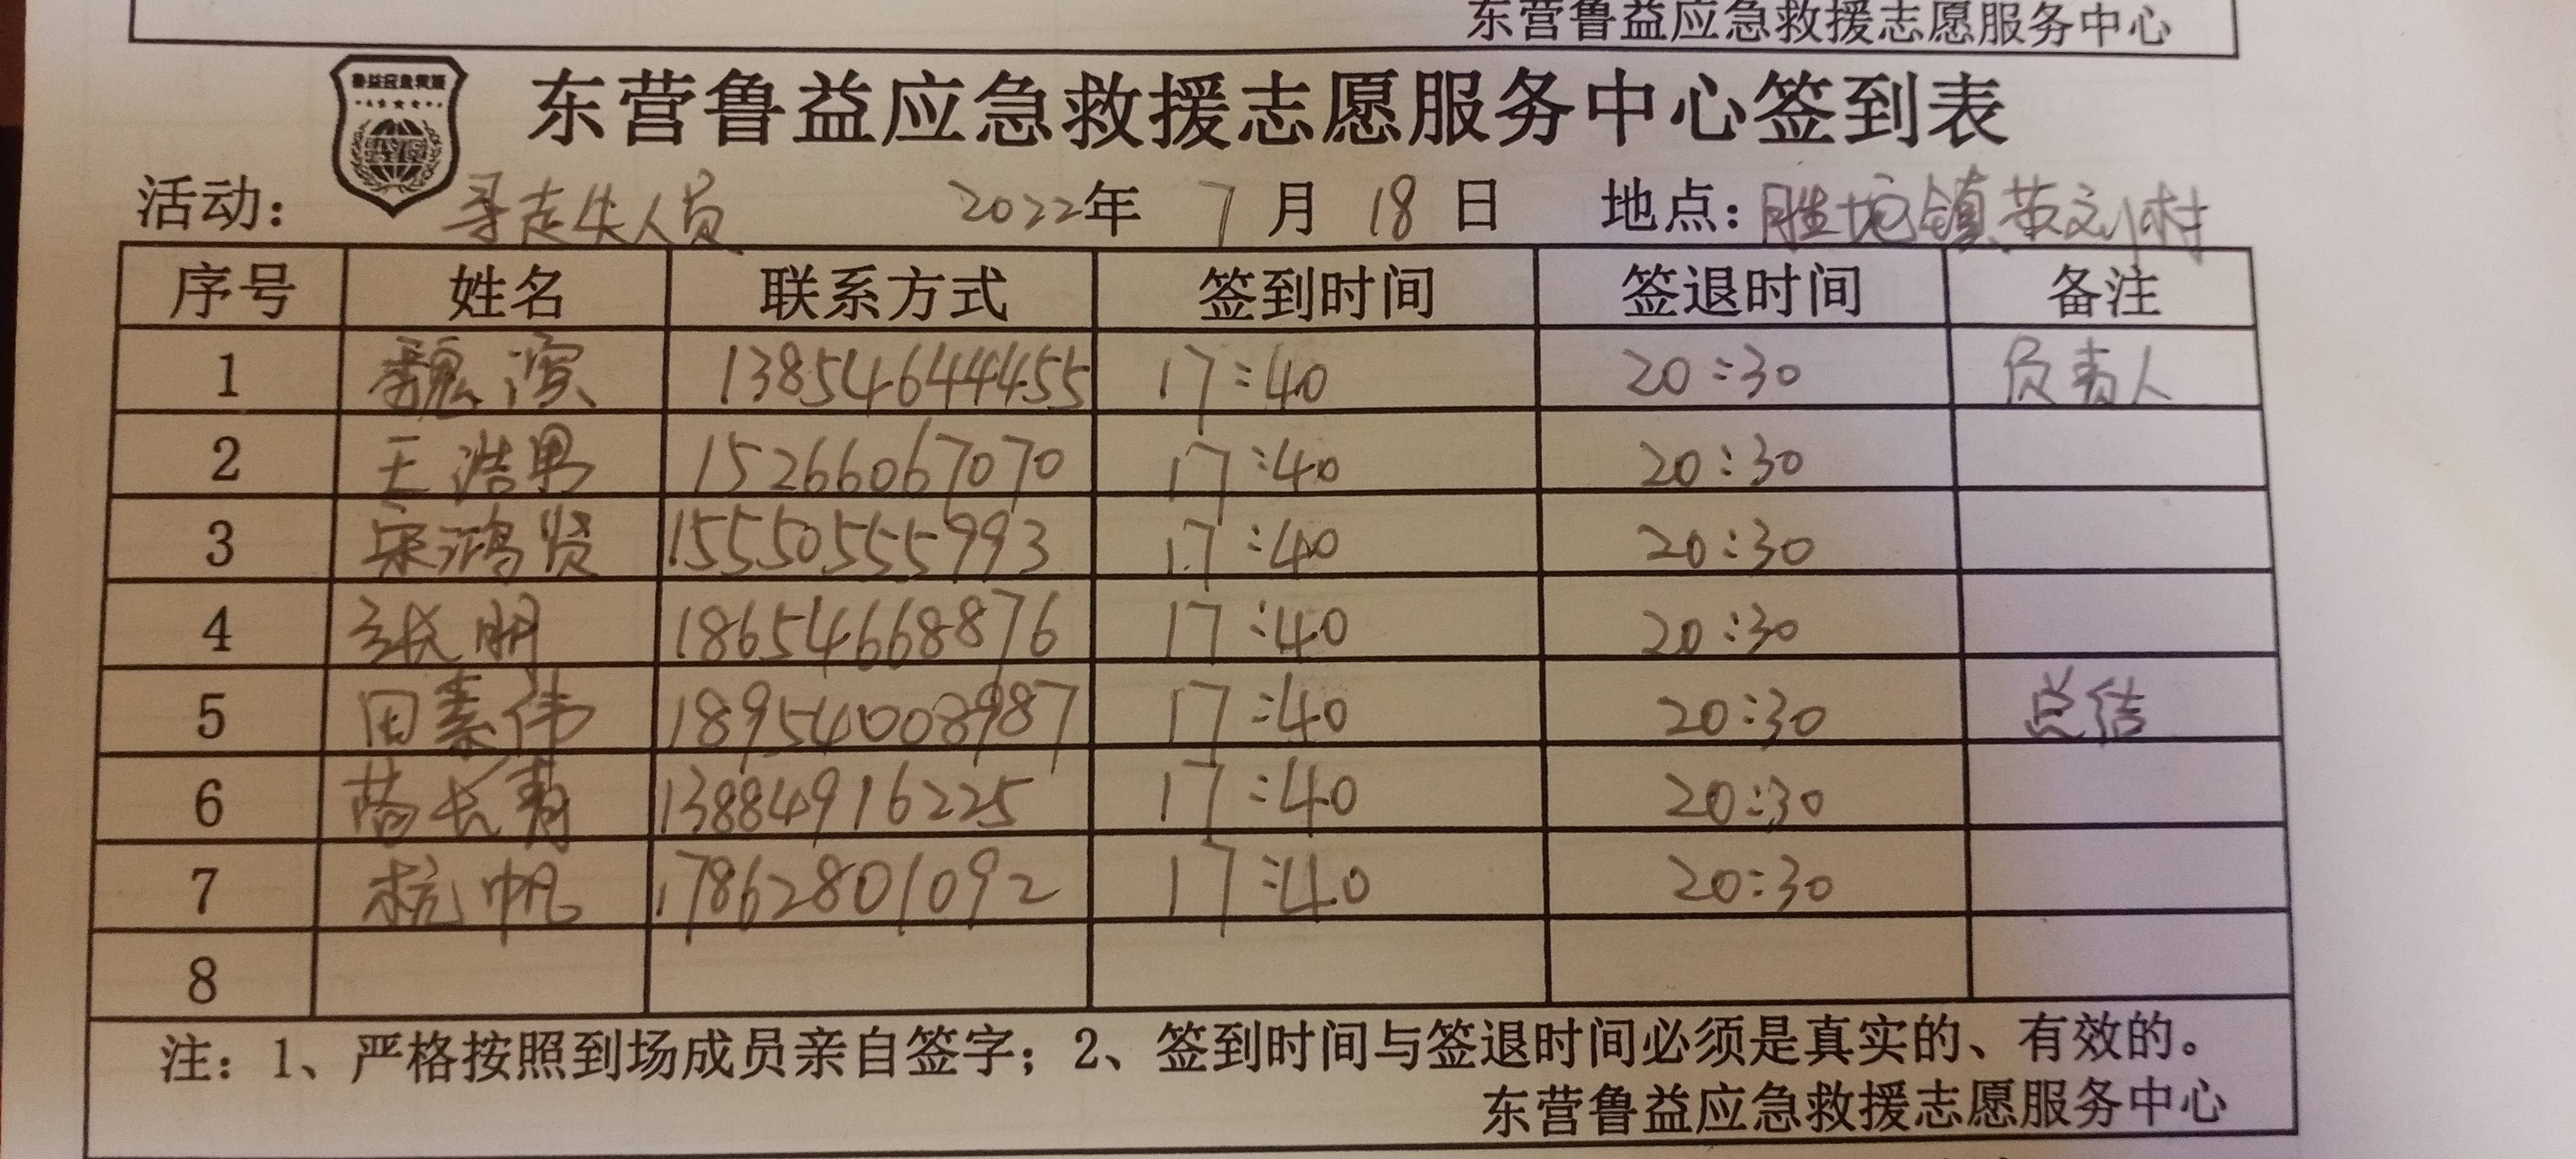 东营鲁益应急救援志愿服务中心
鲁益应急救援
东营鲁益应急救援志愿服务中心签到表
活动: 寻走失人员 2022年 7月 18日 地点: 胜坨镇苏刘村
序号 姓名 联系方式 签到时间 签退时间 备注
1 魏滨 13854644455 17:40 20:30 负责人
2 王浩男 15266067070 17:40 20:30
3 宋鸿贤 15550555993 17:40 20:30
4 张明 18654668876 17:40 20:30
5 田素伟 18954008987 17:40 20:30 总结
6 长青 13884916225 17:40 20:30
7 杭帆 17862801092 17:40 20:30
8
注: 1、严格按照到场成员亲自签字; 2、签到时间与签退时间必须是真实的、有效的。
东营鲁益应急救援志愿服务中心